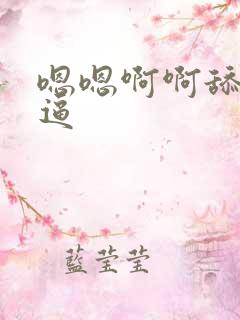 嗯嗯啊啊舔
逼
藍莹莹